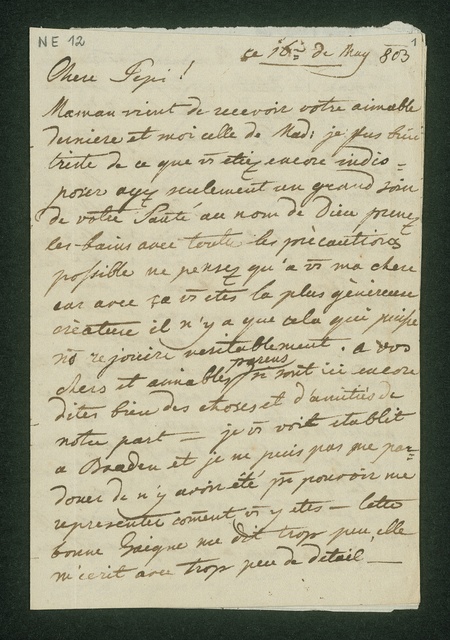 NE 12
1
ce 16me de May 803
Chere Pepi!
Maman vient de recevoir votre aimable
derniere et moi celle de Mad: je fus bien
triste de ce que vs etiez encore indis=
posée ayez seulement un grand soin
de votre Santé au nom de Dieu prenez
les bains avec toute les précautions
possible ne pensez qu'a vs ma chere
car avec ça vs etes la plus généreuse
créature il n'y a que cela qui puisse
ns rejouire veritablement. a vos
chers et aimables parens si sont ici encore
dites bien des choses et d'amitiés de
notre part — je vs voit etablit
a Baaden et je ne puis pas me par=
doner de n'y avoir été pr pouvoir me
representer coment vs y etes — Cette
bonne me dit trop peu, elle
m'ecrit avec trop peu de detail —